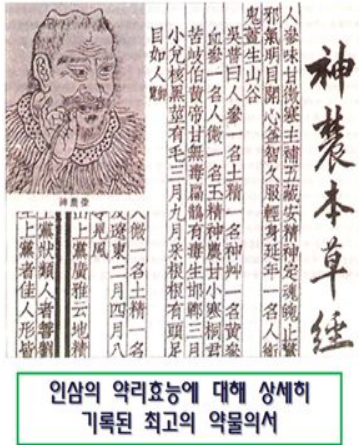 神農本草經
人參味甘微寒主補五藏安精神定魂魄止驚
邪氣明目開心益智久服輕身延年一名人銜
鬼蓋生山谷
吳普曰人參一名土精一名神艸一名黃參
血參一名人微一名玉精神農甘小寒桐君
苦岐伯黃帝甘無毒扁鵲有毒生邯鄲三月
小兌核黑莖有毛三月九月采根根有頭足
目如人御覽
神農像
人微一名土精一名
及遼東二月四月八
見風
上黨廣雅云地精
上黨狀類人者善劉
上黨者佳人形皆
인삼의 약리효능에 대해 상세히
기록된 최고의 약물의서